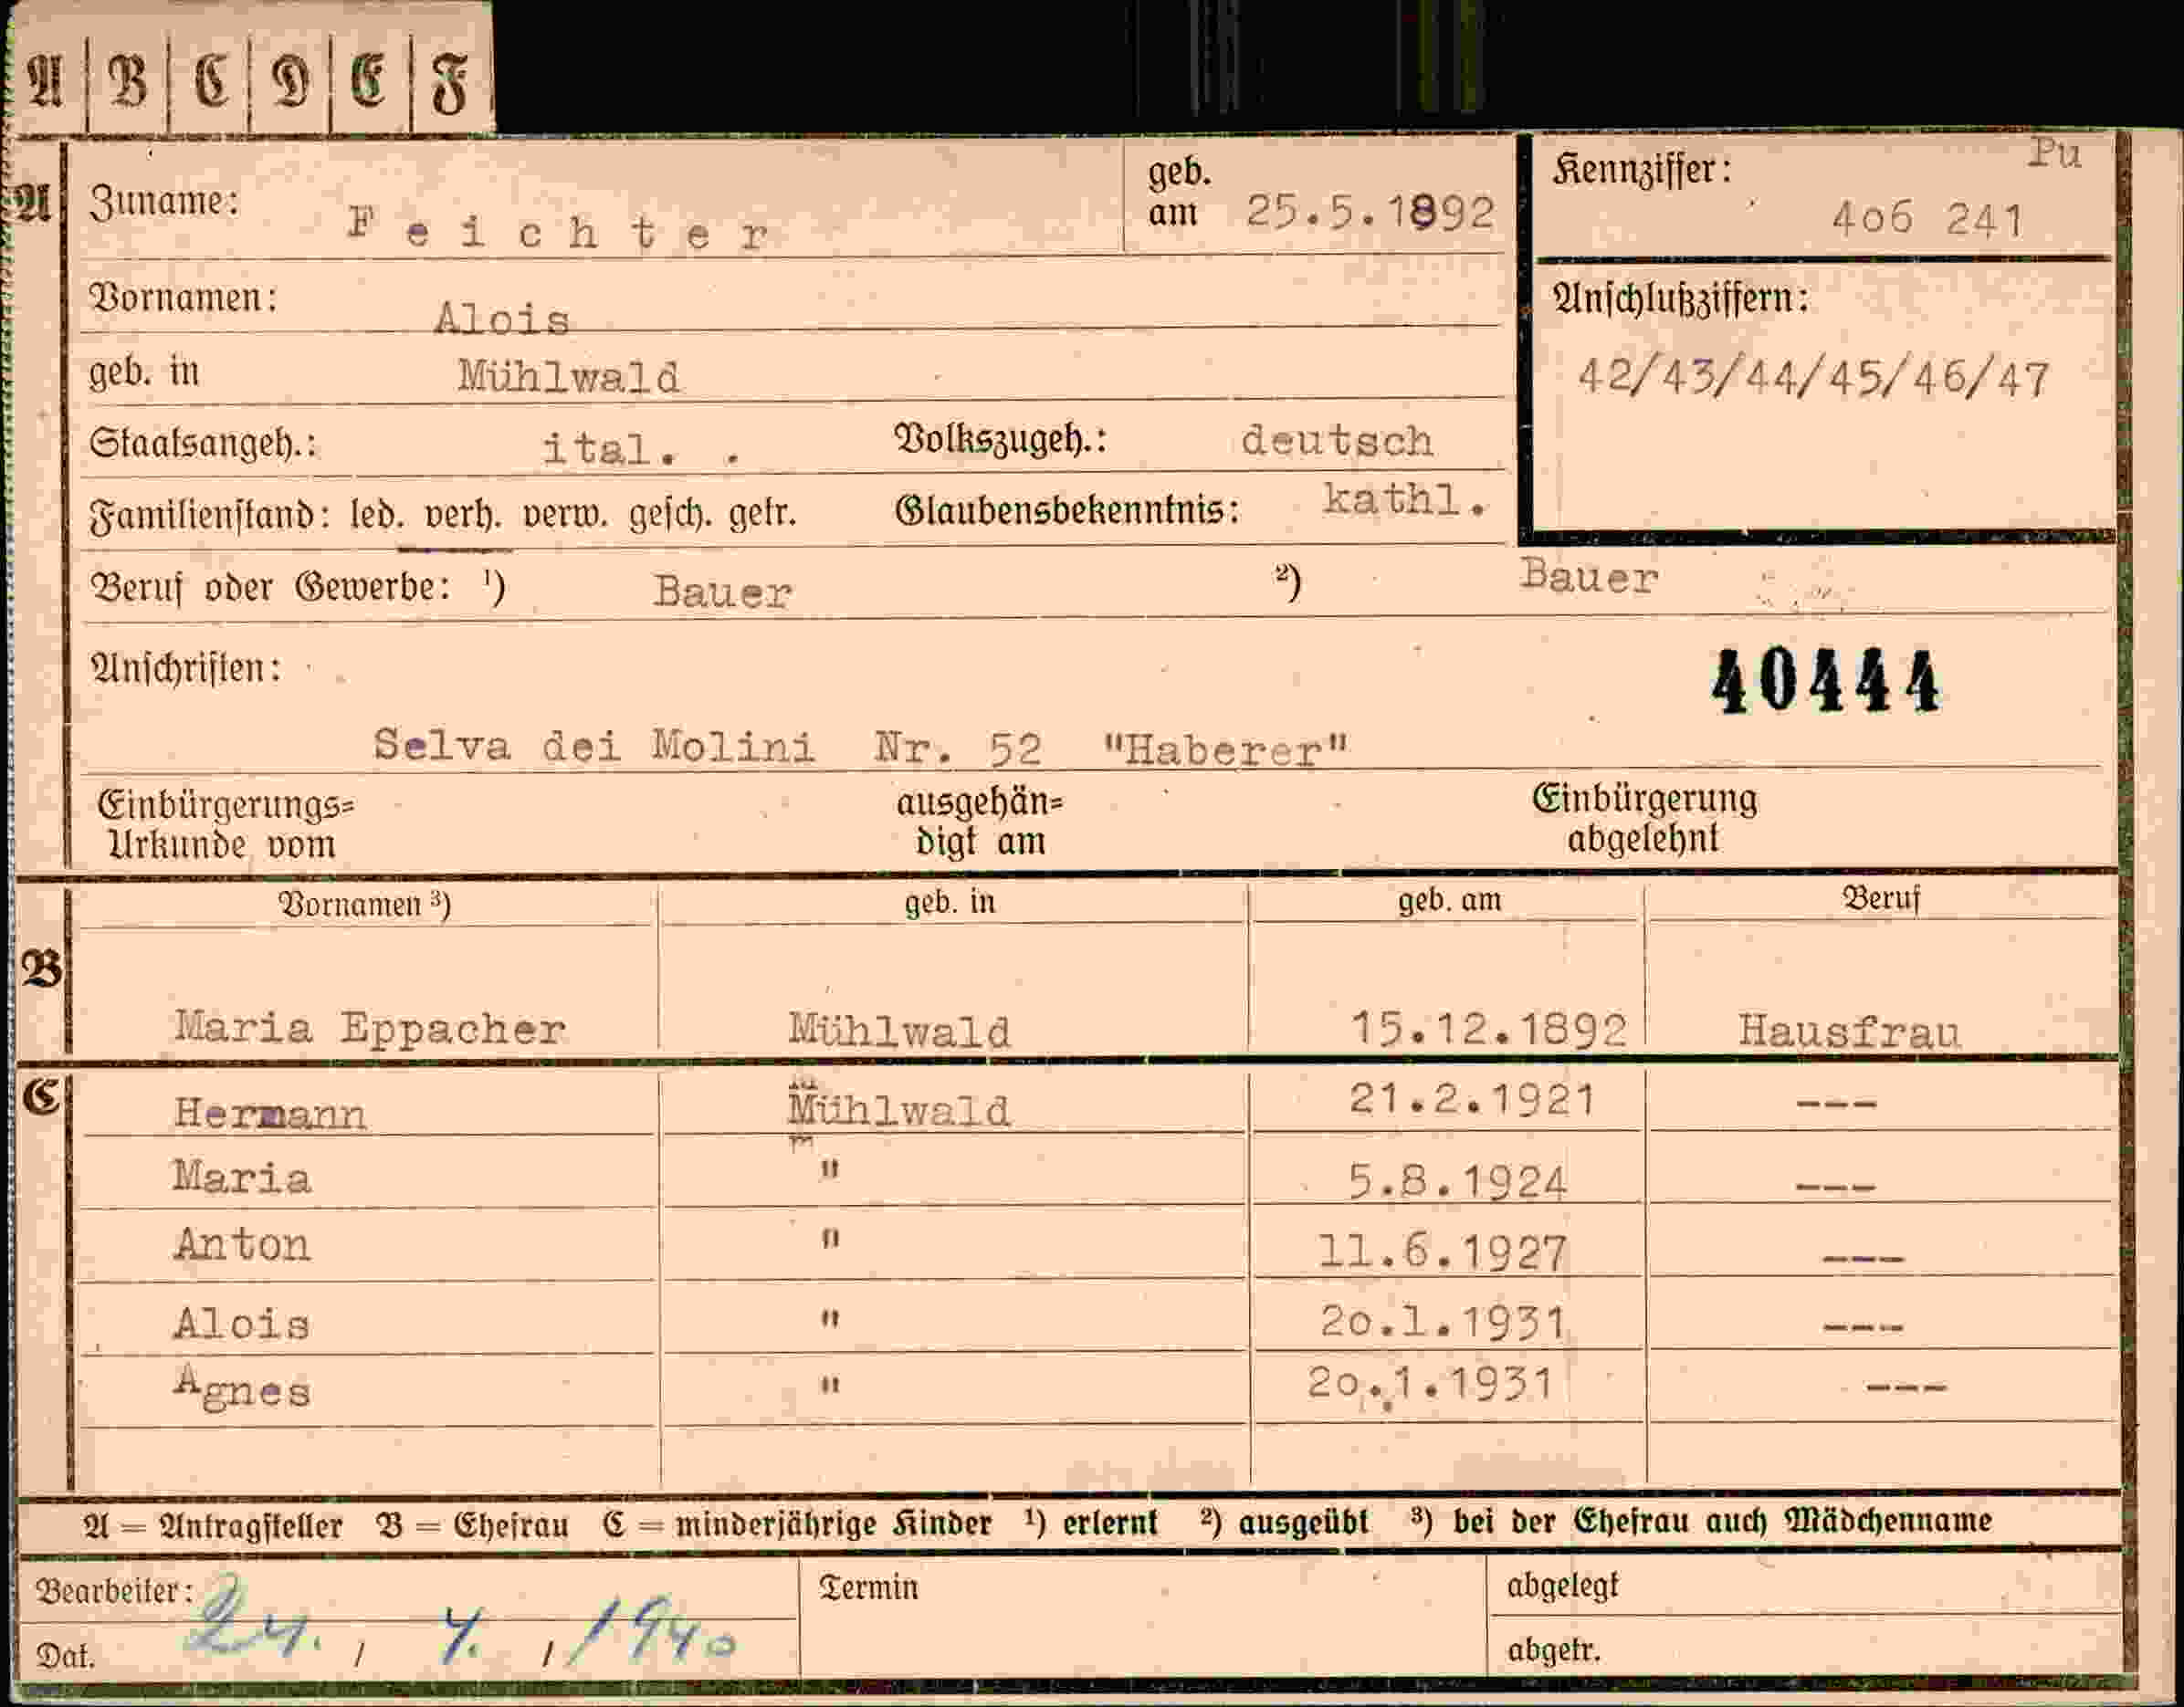 A B C D E F
A Zuname: Feichter geb. am 25.5.1892 Kennziffer: Pu
4o6 241
Vornamen: Alois Anschlußziffern:
geb. in Mühlwald 42/43/44/45/46/47
Staatsangeh.: ital. . Volkszugeh.: deutsch
Familienstand: led. verh. verw. gesch. getr. Glaubensbekenntnis: kathl.
Beruf oder Gewerbe: ¹) Bauer ²) Bauer
Anschriften: 40444
Selva dei Molini Nr. 52 "Haberer"
Einbürgerungs= ausgehän= Einbürgerung
Urkunde vom digt am abgelehnt
Vornamen ³) geb. in geb. am Beruf
B
Maria Eppacher Mühlwald 15.12.1892 Hausfrau
C Hermann Mühlwald 21.2.1921 ---
Maria " 5.8.1924 ---
Anton " 11.6.1927 ---
Alois " 2o.1.1931 ---
Agnes " 2o.1.1931 ---
A = Antragsteller B = Ehefrau C = minderjährige Kinder ¹) erlernt ²) ausgeübt ³) bei der Ehefrau auch Mädchenname
Bearbeiter: Termin abgelegt
Dat. 24. / 4. / 1940 abgetr.